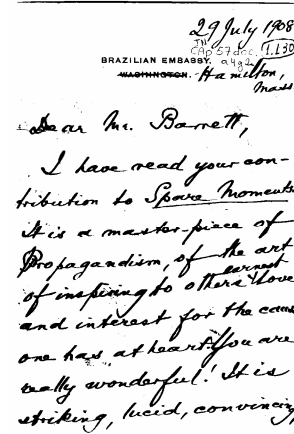 29 July 1908
CAp 57 doc. 1.1.30
a4g2
BRAZILIAN EMBASSY.
WASHINGTON. Hamilton,
Mass
Dear Mr. Barrett,
I have read your con-
tribution to Spare Moments
It is a master-piece of
Propagandism, of the art
of inspiring to others earnest love
and interest for the cause
one has at heart. You are
really wonderful! It is
striking, lucid, convincing,